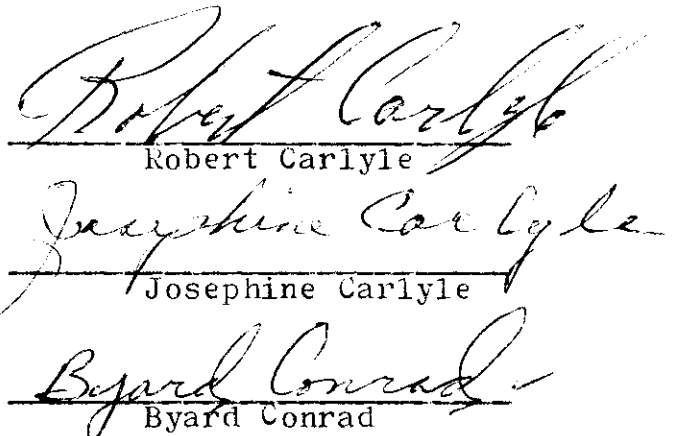 Robert Carlyle
Robert Carlyle
Josephine Carlyle
Josephine Carlyle
Byard Conrad
Byard Conrad